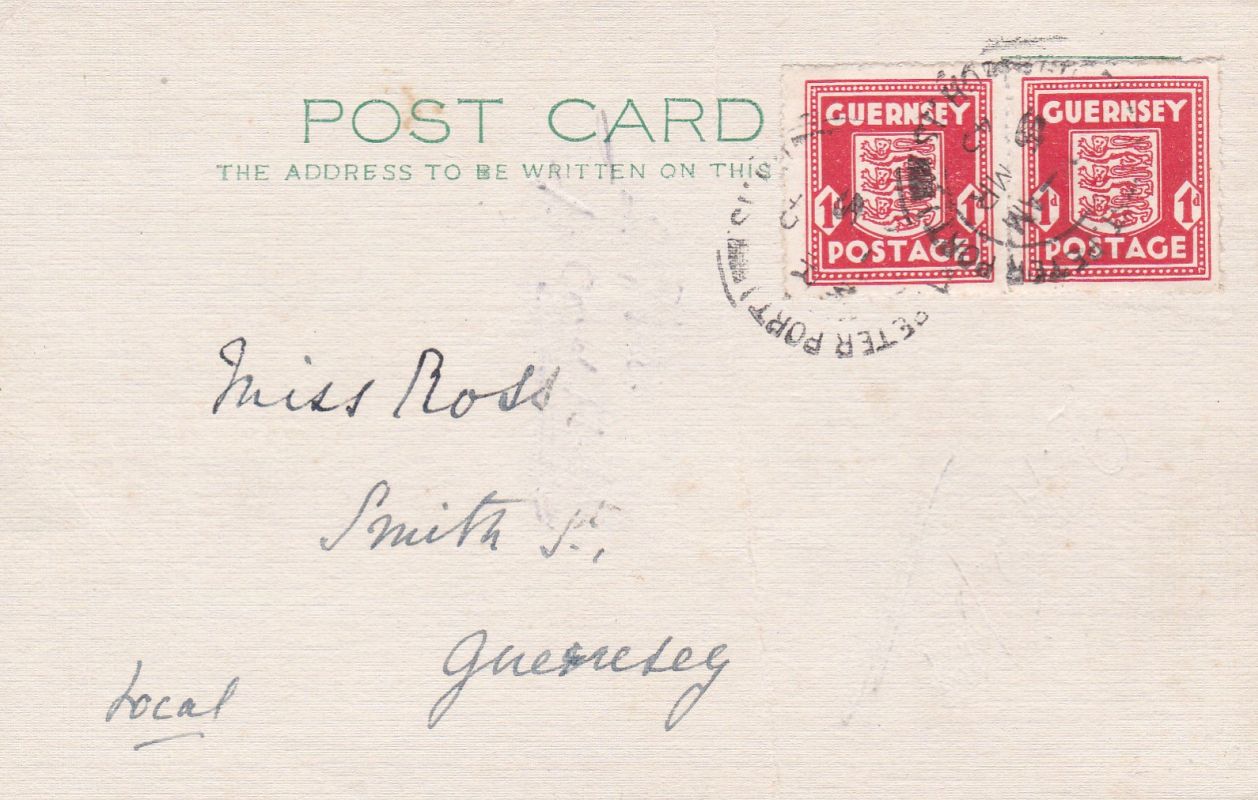 POST CARD
THE ADDRESS TO BE WRITTEN ON THIS
GUERNSEY
1D 1D
POSTAGE
GUERNSEY
1D 1D
POSTAGE
PETER PORT
Miss Ross
Smith St,
Guernsey
Local